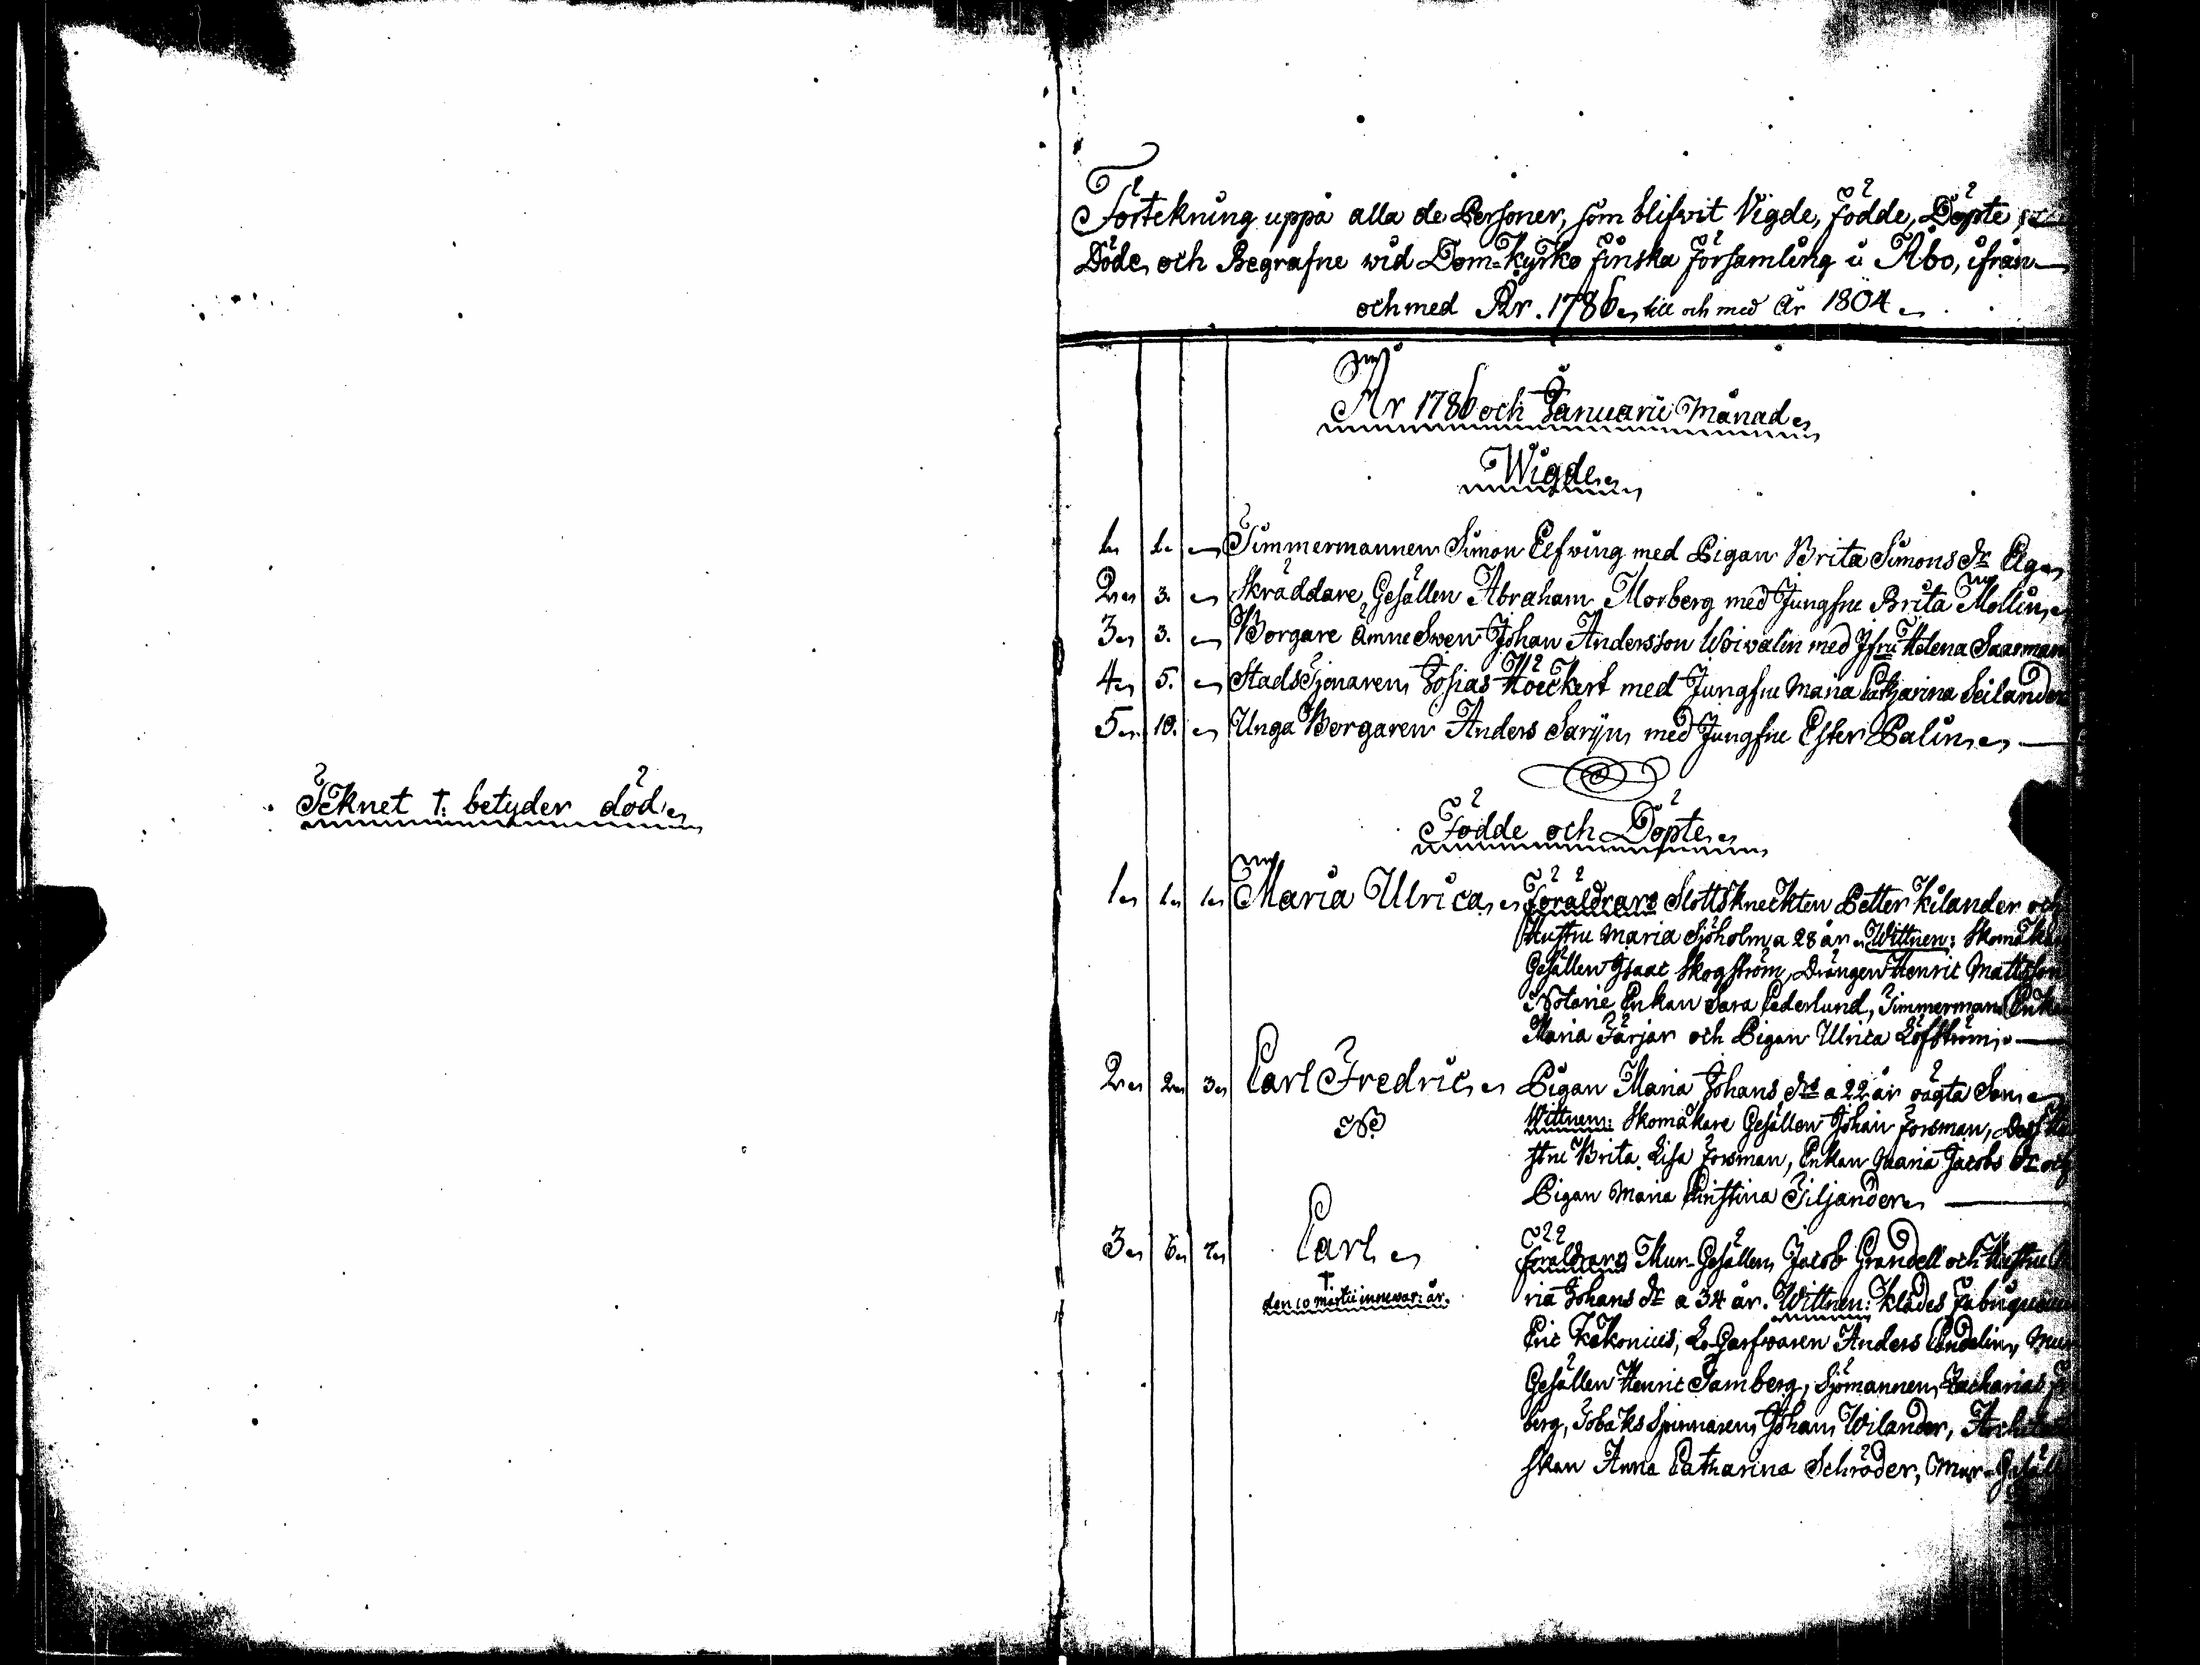 Teknet †. betyder död.
Förtekning uppå alla de Personer, som blifvit Vigde, Födde, Döpte,
Döde, och Begrafne wid Dom-Kyrko Finska Församling i Åbo, ifrån
och med År. 1786, till och med År 1804.
År 1786 och Januarii Månad.
Wigde.
1. 1. Timmermannen Simon Elfving med Pigan Brita Simons dr Elg.
2. 3. Skräddare Gesällen Abraham Morberg med Jungfru Brita Mollin.
3. 3. Borgare Ämne Swen Johan Andersson Woivalin med Jfru Helena Saarman
4. 5. Stads Tjenaren Josias Höckert med Jungfru Maria Catharina Seilander
5. 10. Unga Borgaren Anders Sarijn med Jungfru Ester Palin.
Födde och Döpte.
1. 1. 1. Maria Ulrica. Föräldrar Slottsknechten Petter Kilander och
Hustru Maria Sjöholm a 28 år. Wittnen: Skomakare
Gesällen Isaac Skogström, Drängen Henric Mattsson
Notarie Enkan Sara Cederlund, Timmermans Enkan
Maria Färjar och Pigan Ulrica Löfström.
2. 2. 3. Carl Fredric. Pigan Maria Johans dr a 22 år oägta Son.
NB Wittnen: Skomakare Gesällen Johan Forsman, Dess Hu
stru Brita Lisa Forsman, Enkan Maria Jacobs dr och
Pigan Maria Christina Giljander.
3. 6. 7. Carl. Föräldrar Mur-Gesällen Jacob Grandell och Hustru
† ria Johans dr a 34 år. Wittnen: Klädes
den 10 Martii innevar: år.
Eric Kekonius, Lo-Garfvaren Anders Lindelin, Mur
Gesällen Henric Tamberg, Sjömannen Zacharias
berg, Tobaks Spinnaren Johan Wilander,
skan Anna Catharina Schröder, Mur-Gesäll